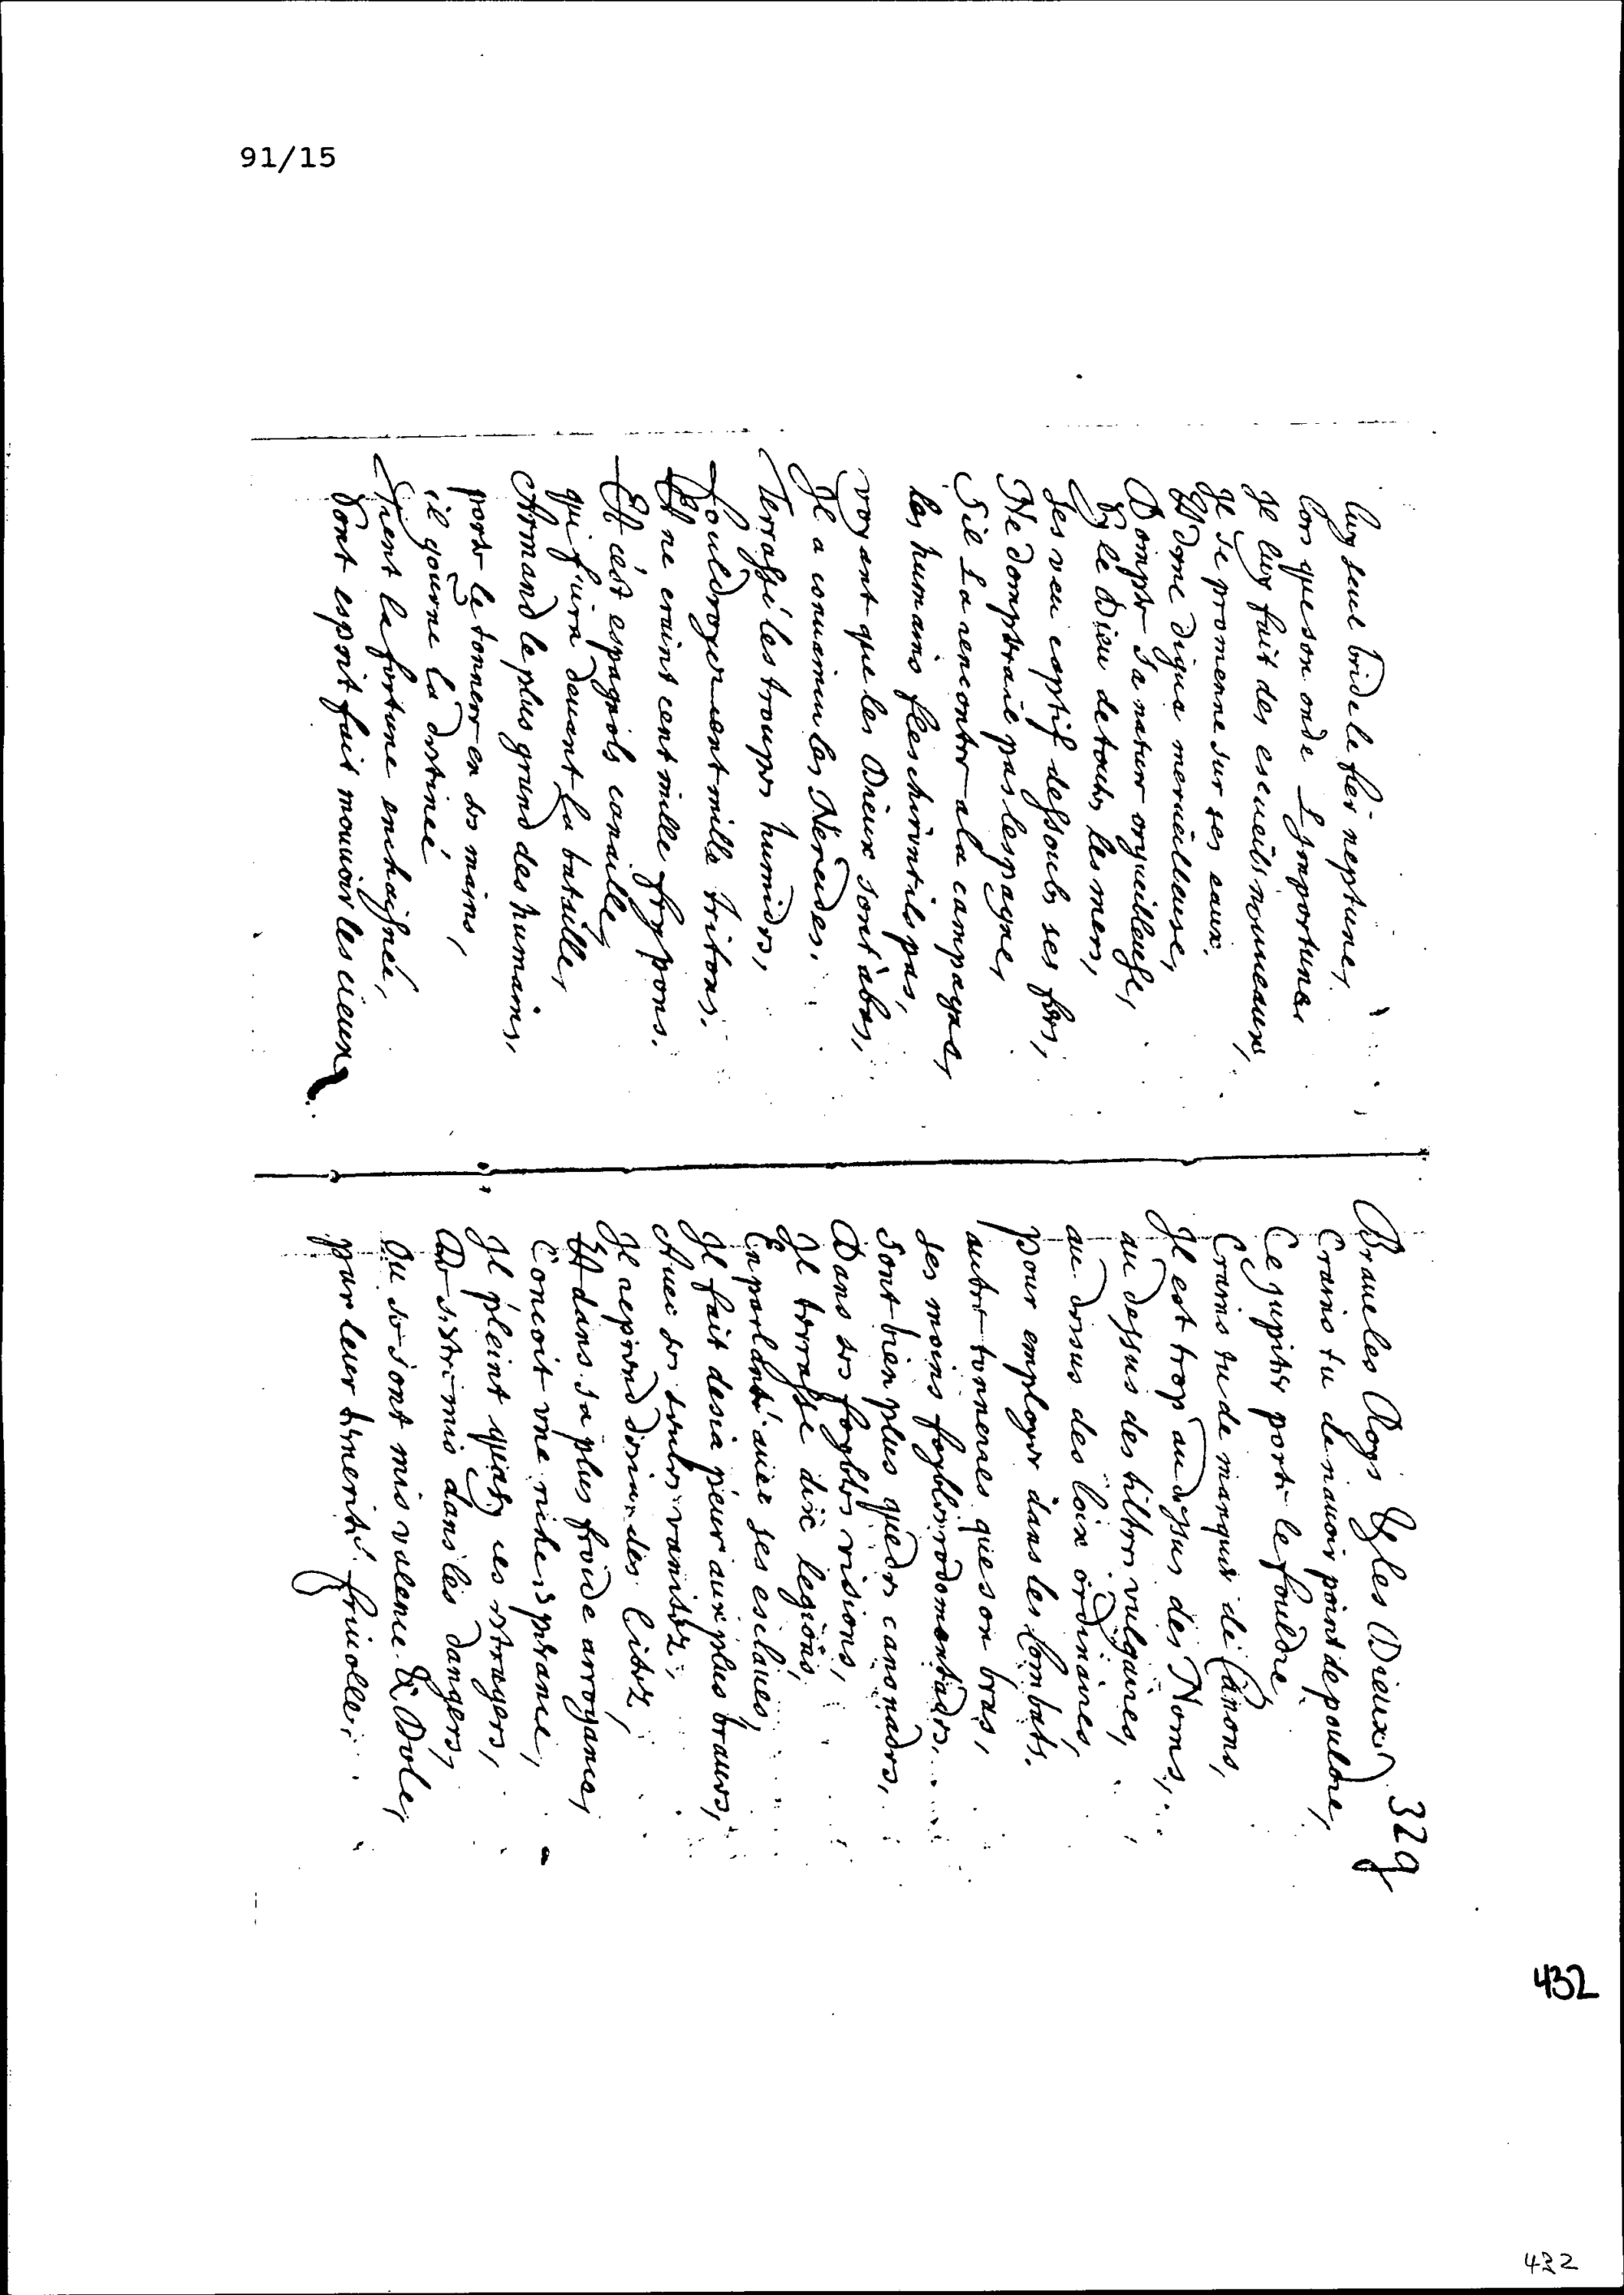 91/15
luy seul bride le fier neptune,
lors que son onde L'Importune
Il luy fait des escueils nouueaux,
Il se promenne sur ses eaux.
D'vne digue merueilleuse,
Dompte sa nature orgueilleuse,
Et le Dieu de toutes les mers,
ses veu captif dessoubs ses fers,
Ne domptraie pas lespagne,
Sil La rencontre a la campagne,
les humains fleschiront ils pas,
voyant que les Dieux sont abas,
Il a conuaincu les Nereides,
Terrassé les troupes humides,
Fouldroyé cent mille tritons.
Et ne craint cent mille frypons.
Et cest espagnols canaille,
qui fuira deuant la bataille,
Armand le plus grand des humains,
porte le tonnerre en ses mains,
il gouerne la destineé
Tient la fortune enchaisneé,
Dont esprit fait mouuoir les cieux
329
Braue les Roys Et les Dieux
Crains tu de nauoir point de pouldre,
Ce jupiter porte le fouldre,
Crains tu de manquer de Canons,
Il est trop au dessus des Noms,
au dessus des tiltres vulgaires,
au dessus des loix ordinaires,
pour employer dans les Combats.
autre tonnerres que son bras,
ses moins foybles rodomontades,
sont bien plus que des canonades,
Dans ses foybles visions,
Il terrasse dix legions,
En parlant auec ses esclaues,
Il fait desia peur aux plus braues,
Auec ses seules vanitez,
Il reprend desia des Citez,
Et dans sa plus froide arrogance,
Concoit vne riche esperance,
Il pleint quasy ces estragers,
De sestre mis dans les dangers,
Ou se sont mis valence & Dole,
par leur temerité friuolle,
432
422